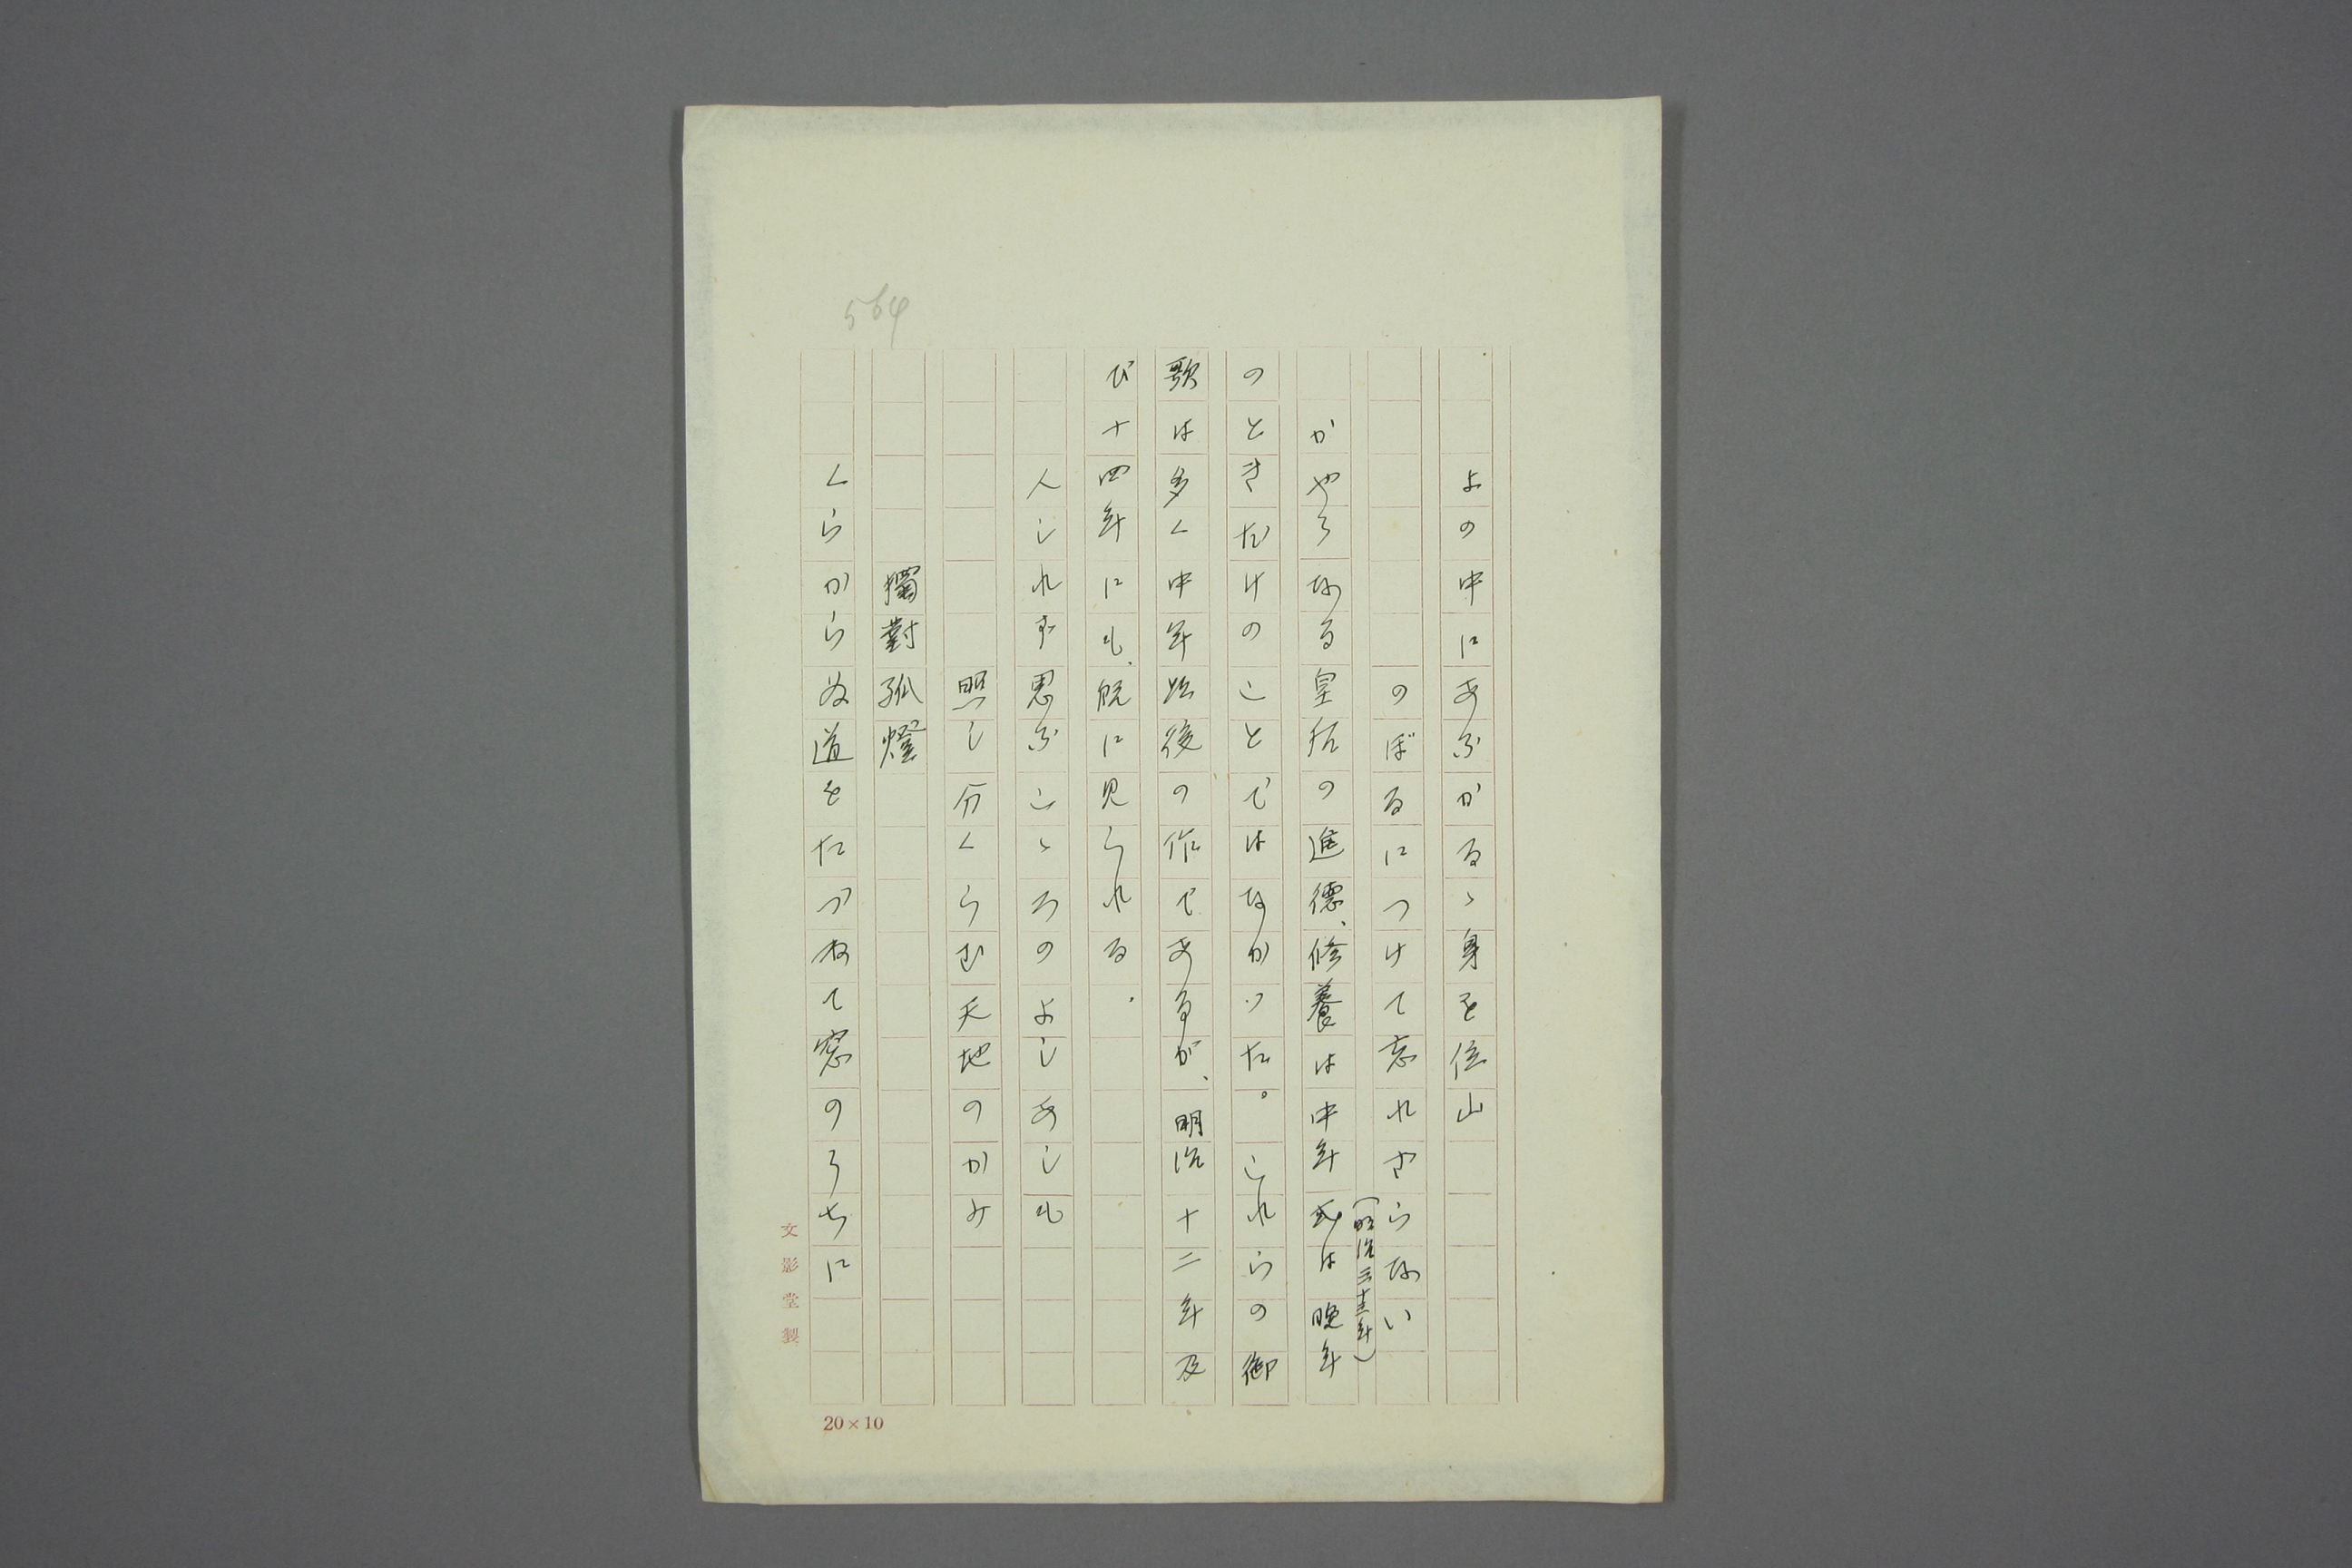 564
よの中にあふがるゝ身を位山
のぼるにつけて忘れさらない
(明治三十三年)
かやうなる皇后の進德、修養は中年或は晩年
のときだけのことではなかった。これらの御
歌は多く中年以後の作であるが、明治十二年及
び十四年にも、既に見られる。
人しれず思ふこゝろのよしあしも
照し分くらむ天地のかみ
獨對孤燈
くらからぬ道をたづねて窓のうちに
文影堂製
20×10